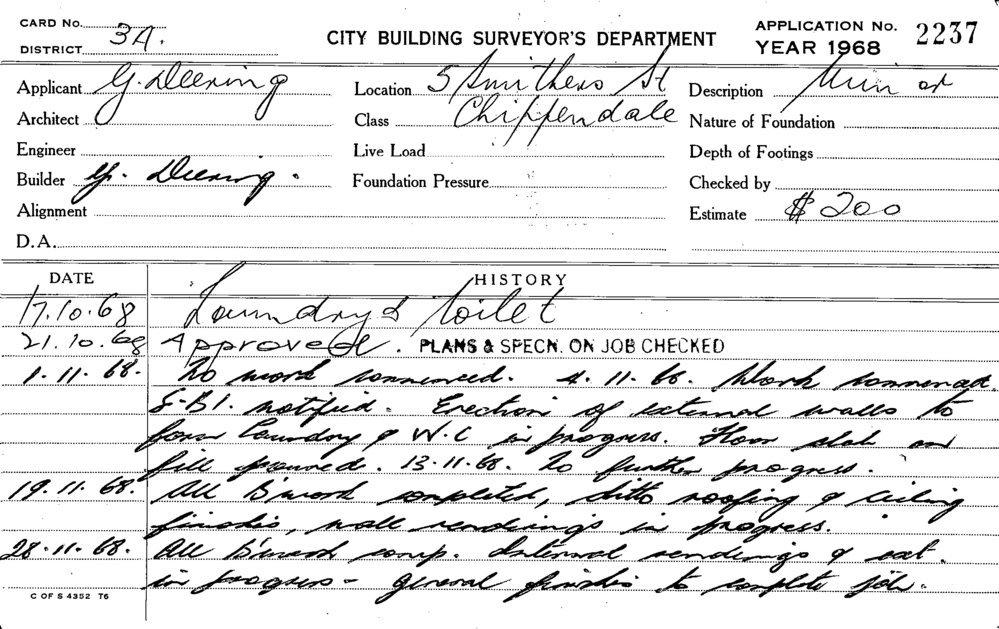 CARD No. 3A.
DISTRICT
CITY BUILDING SURVEYOR'S DEPARTMENT
APPLICATION No. 2237
YEAR 1968
Applicant G. Deering
Location 5 Smithers St
Description Minor
Architect
Class Chippendale
Nature of Foundation
Engineer
Live Load
Depth of Footings
Builder G. Deering.
Foundation Pressure
Checked by
Alignment
Estimate $200
D.A.
DATE HISTORY
17.10.68 Laundry & toilet
21.10.68 Approved. PLANS & SPECN. ON JOB CHECKED
1.11.68. No work commenced. 4.11.68. Work commenced.
S.B.I. notified. Erection of external walls to
form laundry & W.C in progress. Floor slab on
fill poured. 13.11.68. No further progress.
19.11.68. All B'work completed, ditto roofing & ceiling
finishes, wall renderings in progress.
28.11.68. All B'work comp. Internal renderings & ext
in progress - general finishes to complete job.
C OF S 4352 T6